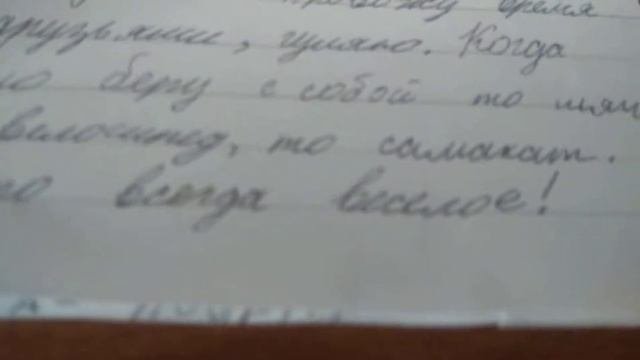 провожу время
друзьями, гуляю. Когда
беру с собой то мяч
велосипед, то самакат.
всегда веселое!